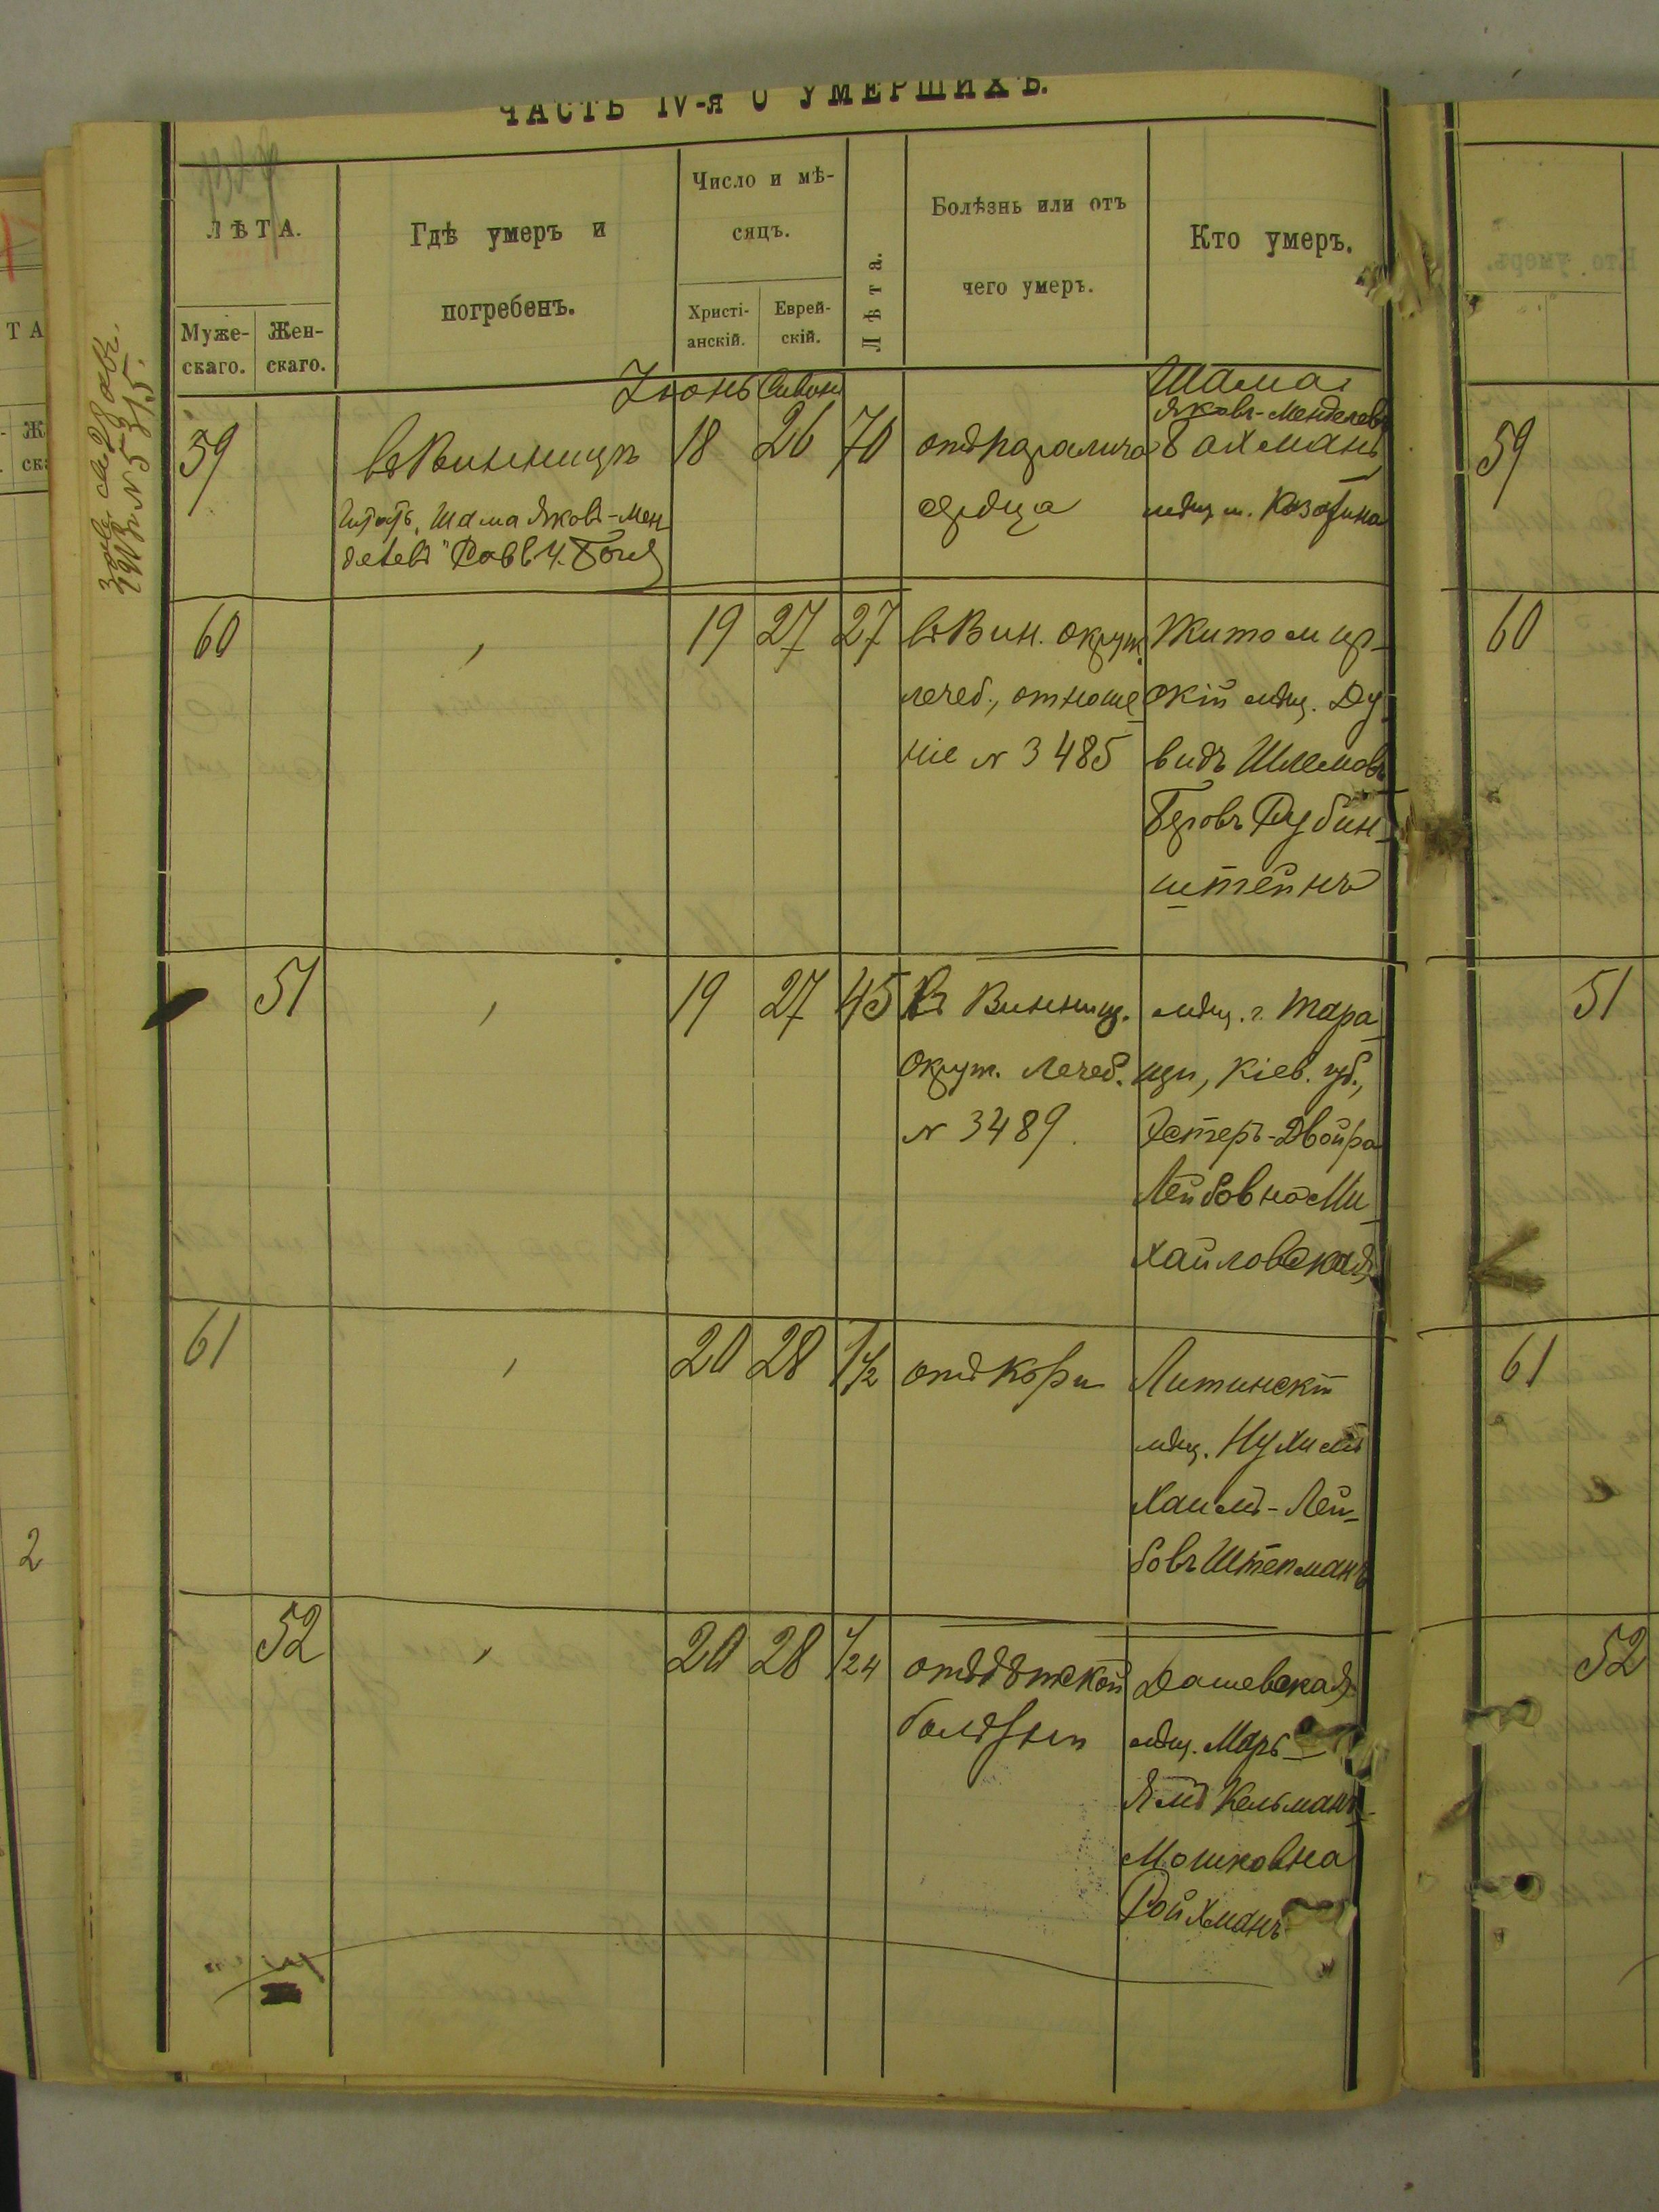 ЧАСТЬ IV-я О УМЕРШИХЪ.
ЛѢТА.
Муже-
скаго.
Жен-
скаго.
Гдѣ умеръ и
погребенъ.
Число и мѣ-
сяцъ.
Христі-
анскій.
Еврей-
скій.
Лѣта.
Болѣзнь или отъ
чего умеръ.
Кто умеръ.
Іюнь Сивонъ
59
въ Винницѣ
Шама Яковъ-Мен
делевъ" Равв.
18 26 70
отъ паралича
сердца
Шама
Яковъ-Менделевъ
Бахманъ
мѣщ. м. Казатина
60
19 27 27
въ Вин. окруж.
лечеб., отноше
ніе № 3485
Житомир-
скій мѣщ. Ду
видъ Шлемовъ
Беровъ Рубин-
штейнъ
51
19 27 45
Въ Винниц.
Окруж. Лечеб.
№ 3489.
мѣщ. г. Тара
щи, Кіев. губ.,
Эстеръ-Двойра
Лейбовна Ми
хайловская
61
20 28 1 1/2
отъ кори
Литинскій
мѣщ. Нухимъ
Хаимъ-Лей-
бовъ Штепманъ
52
20 28 1/24
отъ дѣтской
болѣзни
Дашевская
мѣщ. Марь-
ямъ Кельманъ-
Мошковна
Ройхманъ
59
60
51
61
52
2